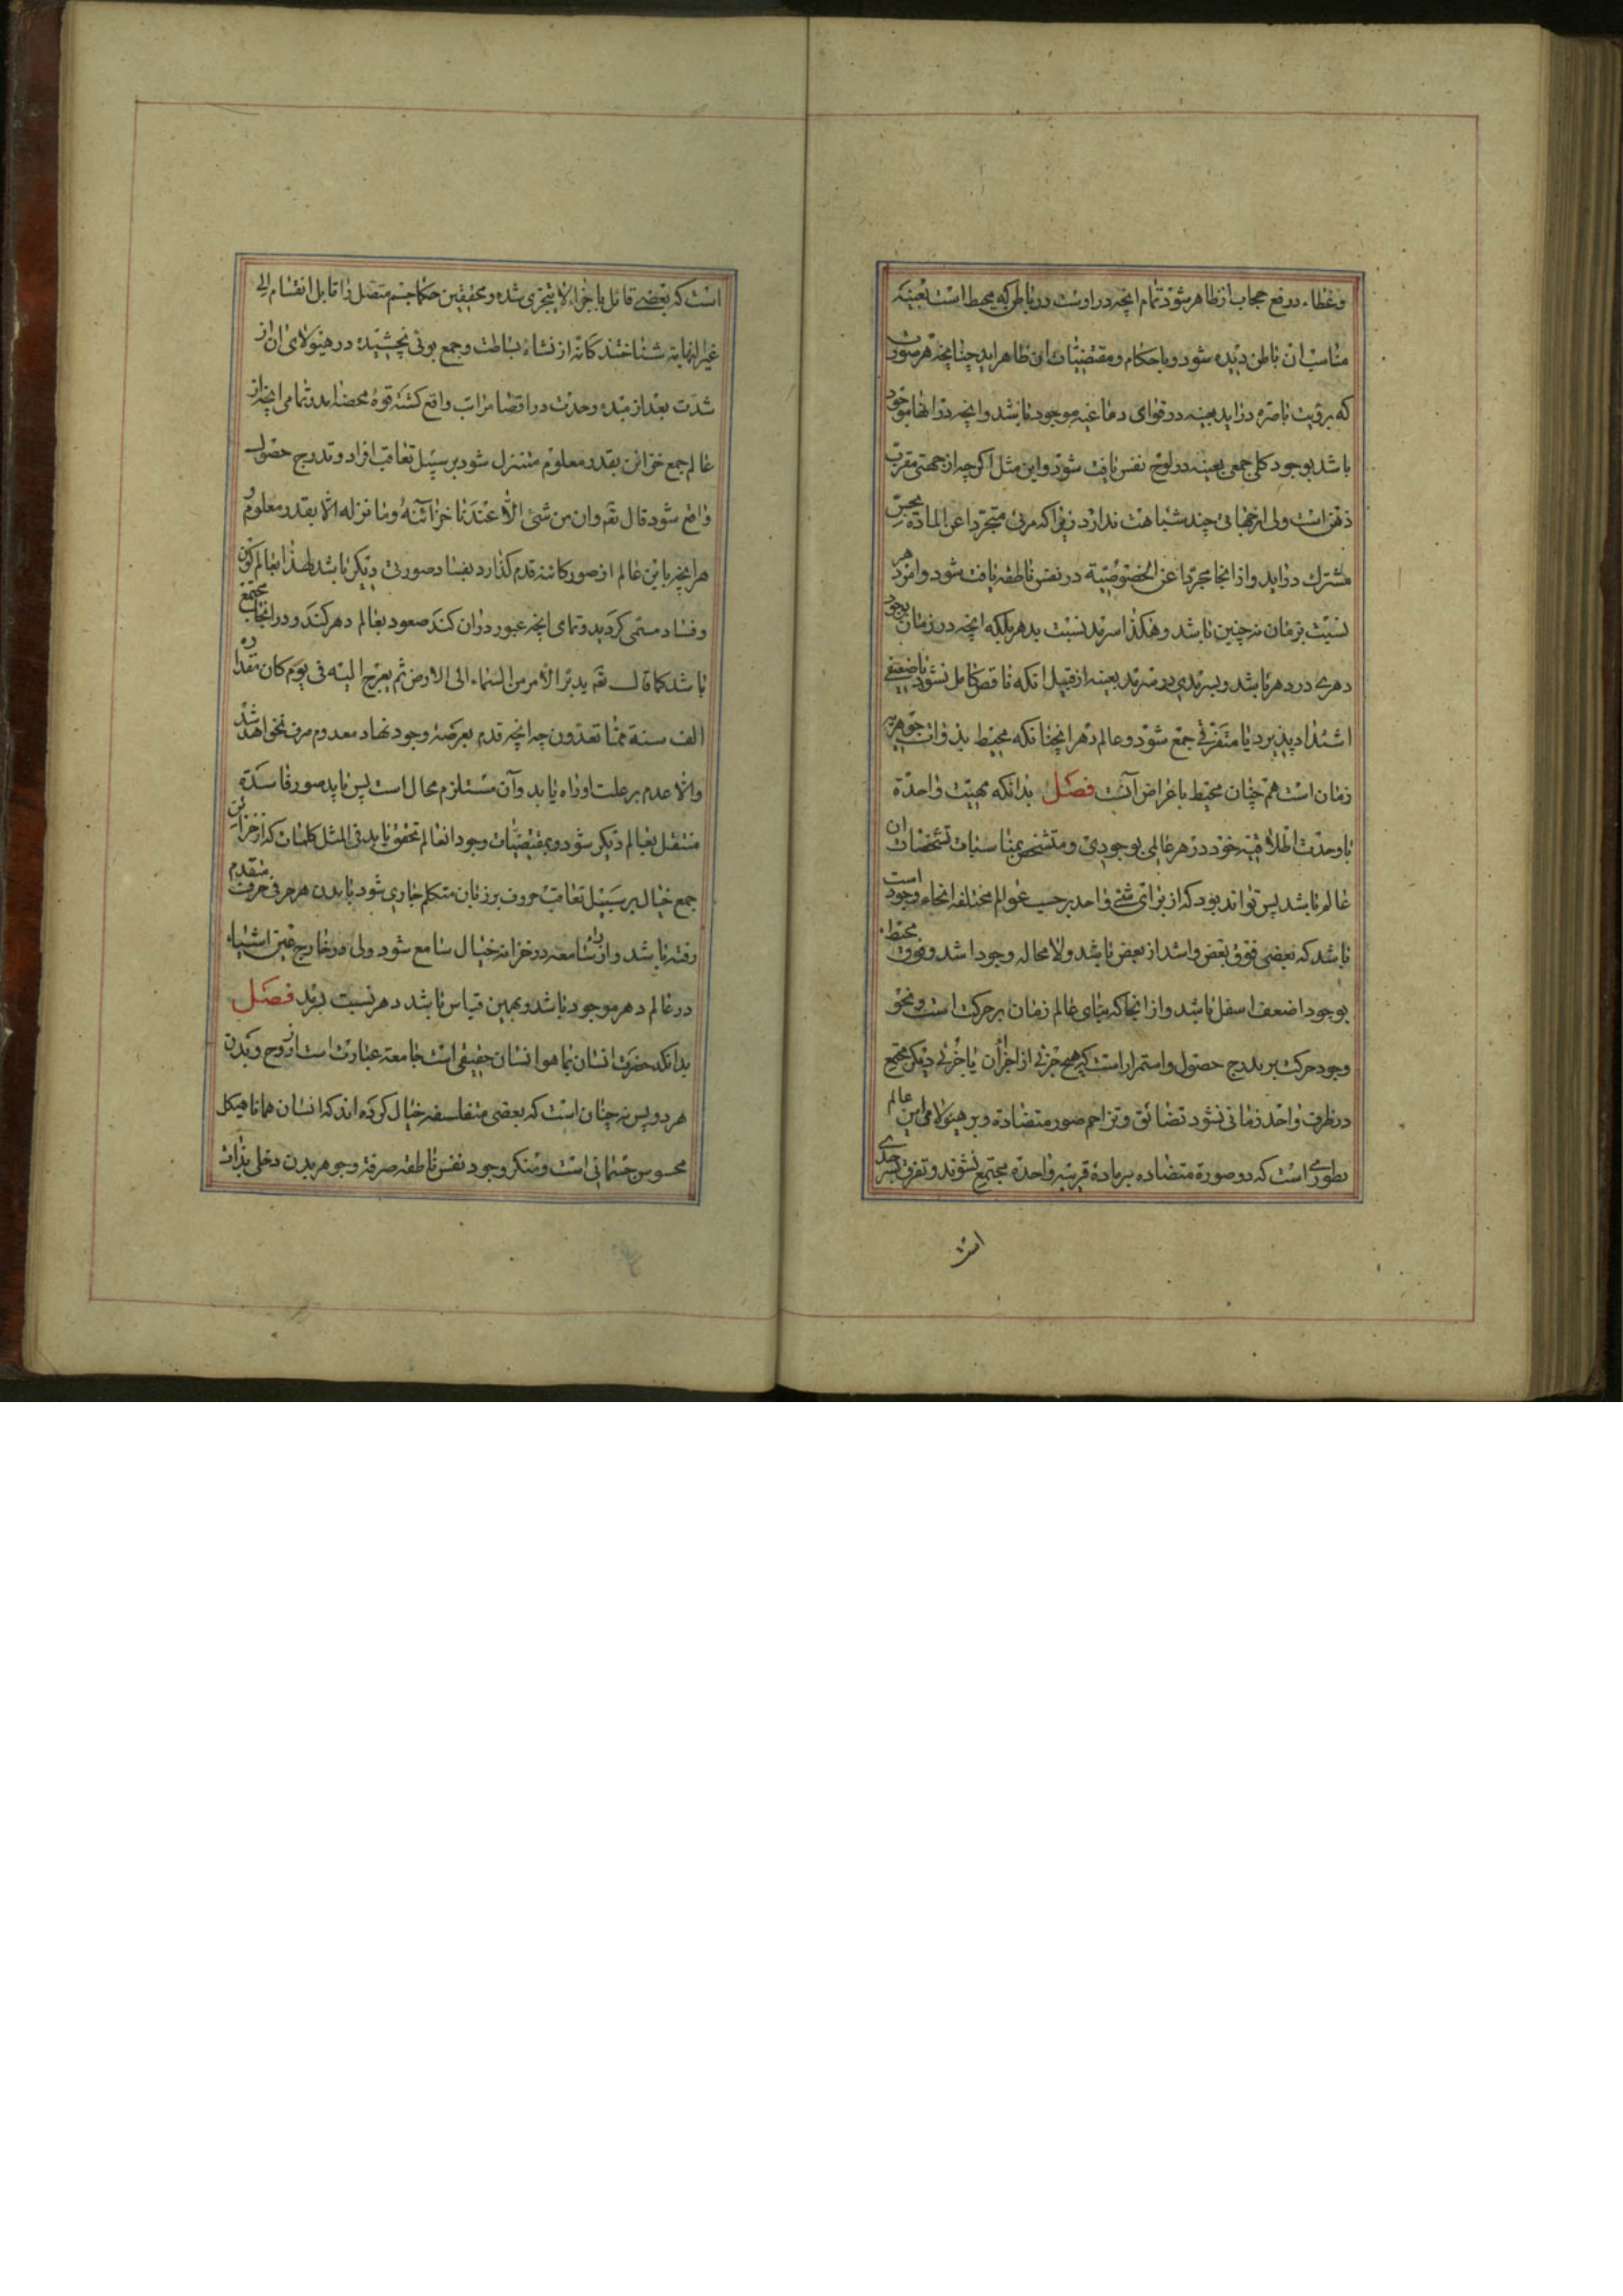 وغطاء ورفع حجاب از ظاهر شود تمام انچه در اوست در باطن که محیط است بعینه
مناسب ان باطن دیده شود و باحکام و مقتضیات ان ظاهر اید چنانچه هر صورت
که برؤیت باصره دراید بعینه در قوای دماغیه موجود باشد وانچه در انها موجود
باشد بوجود کلی جمعی بعینه در لوح نفس یافت شود و این مثل اکرچه از جهتی مقرب
ذهن است ولی از جهاتی چند شباهت ندارد زیرا که مرئی متجردا عن المادة بحس
مشترك دراید واز انجا مجردا عن الخصوصیة در نفس ناطقه یافت شود و امر دهر
نسبت بزمان نه چنین باشد وهکذا سرمد نسبت بدهر بلکه انچه در زمان بوجود
دهری در دهر باشد وبسرمدی در سرمد بعینه از قبیل انکه ناقص کامل نشود یا ضعیفی
اشتداد پذیرد یا متفرقی جمع شود وعالم دهر انچنانکه محیط بذوات جوهریه
زمان است همچنان محیط باعراض آنست فصل بدانکه مهیت واحدة
با وحدت اطلاقیه خود در هر عالمی بوجودی و متشخص بمناسبات تشخصات ان
عالم باشد پس تواند بود که از برای شئ واحد بر حسب عوالم مختلفه انحاء وجود است
باشد که بعضی فوق بعض واشد از بعض باشد ولا محاله وجود اشد وفوق محیط
بوجود اضعف اسفل باشد واز انجا که بنای عالم زمان بر حرکت است ونحو
وجود حرکت بر تدرج حصول واستمرار است که هیچ جزئی از اجزا ان با جزئی دیکر مجتمع
در ظرف واحد زمانی نشود تضائق وتزاحم صور متضادة وبر هیولای این عالم
بطوری است که دو صورة متضاده بر ماده قریبه واحدة مجتمع نشوند وتفرق بسرحدی
است
است که بعضی قائل باجزاء لا یتجزی شده ومحققین حکما جسم متصل را قابل انقسام الی
غیر النهایة شناختند کانه از نشاه بساطت وجمع بوئی نچشیده در هیولای ان از
شدت بعد از مبدء وحدت در اقصا مراتب واقع کشته قوهٔ محضه امد تمامی انچه از
عالم جمع خزائن بقدر معلوم متنزل شود بر سبیل تعاقب افراد وتدرج حصول
واقع شود قال تعم وان من شئ الّا عندنا خزآئنهُ وما ننزله الّا بقدر معلوم و
هر انچه باین عالم از صور کائنه قدم کذارد بفساد صورتی دیکر باشد لهذا بعالم کون
وفساد مسمی کردید وتمامی انچه عبور در ان کند صعود بعالم دهر کند ودر انجا مجتمع
باشد کما قال تعم یدبّر الأمر من السّماء الی الأرض ثم یعرج الیه فی یوم کان مقداره
الف سنة ممّا تعدّون چه انچه قدم بعرصه وجود نهاد معدوم صرف نخواهد شد
والّا عدم بر علت او راه یابد وآن مستلزم محال است پس باید صور فاسدة
منتقل بعالم دیکر شود وبمقتضیات وجود انعالم تحقق یابد فی المثل کلمات که از خزائن
جمع خیال بر سبیل تعاقب حروف بر زبان متکلم جاری شود باید هر حرفی حرف متقدم
رفته باشد واز سامعه در خزانه خیال سامع شود ولی در خارج عین اشیاء
در عالم دهر موجود باشد وبهمین قیاس باشد دهر نسبت بسرمد فصل
بدانکه حضرت انسان بما هو انسان حقیقی است جامعه عبارت است از روح وبدن
هر دو پس نه چنان است که بعضی متفلسفه خیال کرده اند که انسان همانا هیکل
محسوس جسمانی است ومنکر وجود نفس ناطقه صرفة وجوهر بدن دخلی بذات